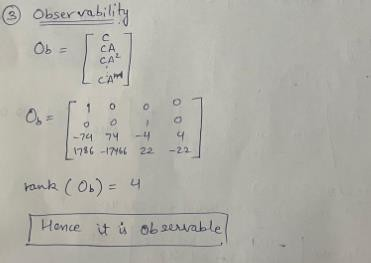 ③ Observability
Ob = [ C
CA
CA²
:
CAⁿ⁻¹ ]
Ob = [ 1 0 0 0
0 0 1 0
-74 74 -4 4
1786 -17466 22 -22 ]
rank (Ob) = 4
Hence it is observable